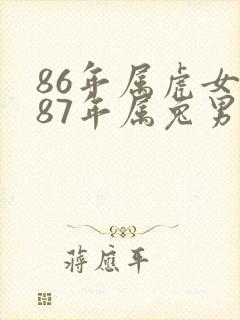 86年属虎女
87年属兔男
蒋应平